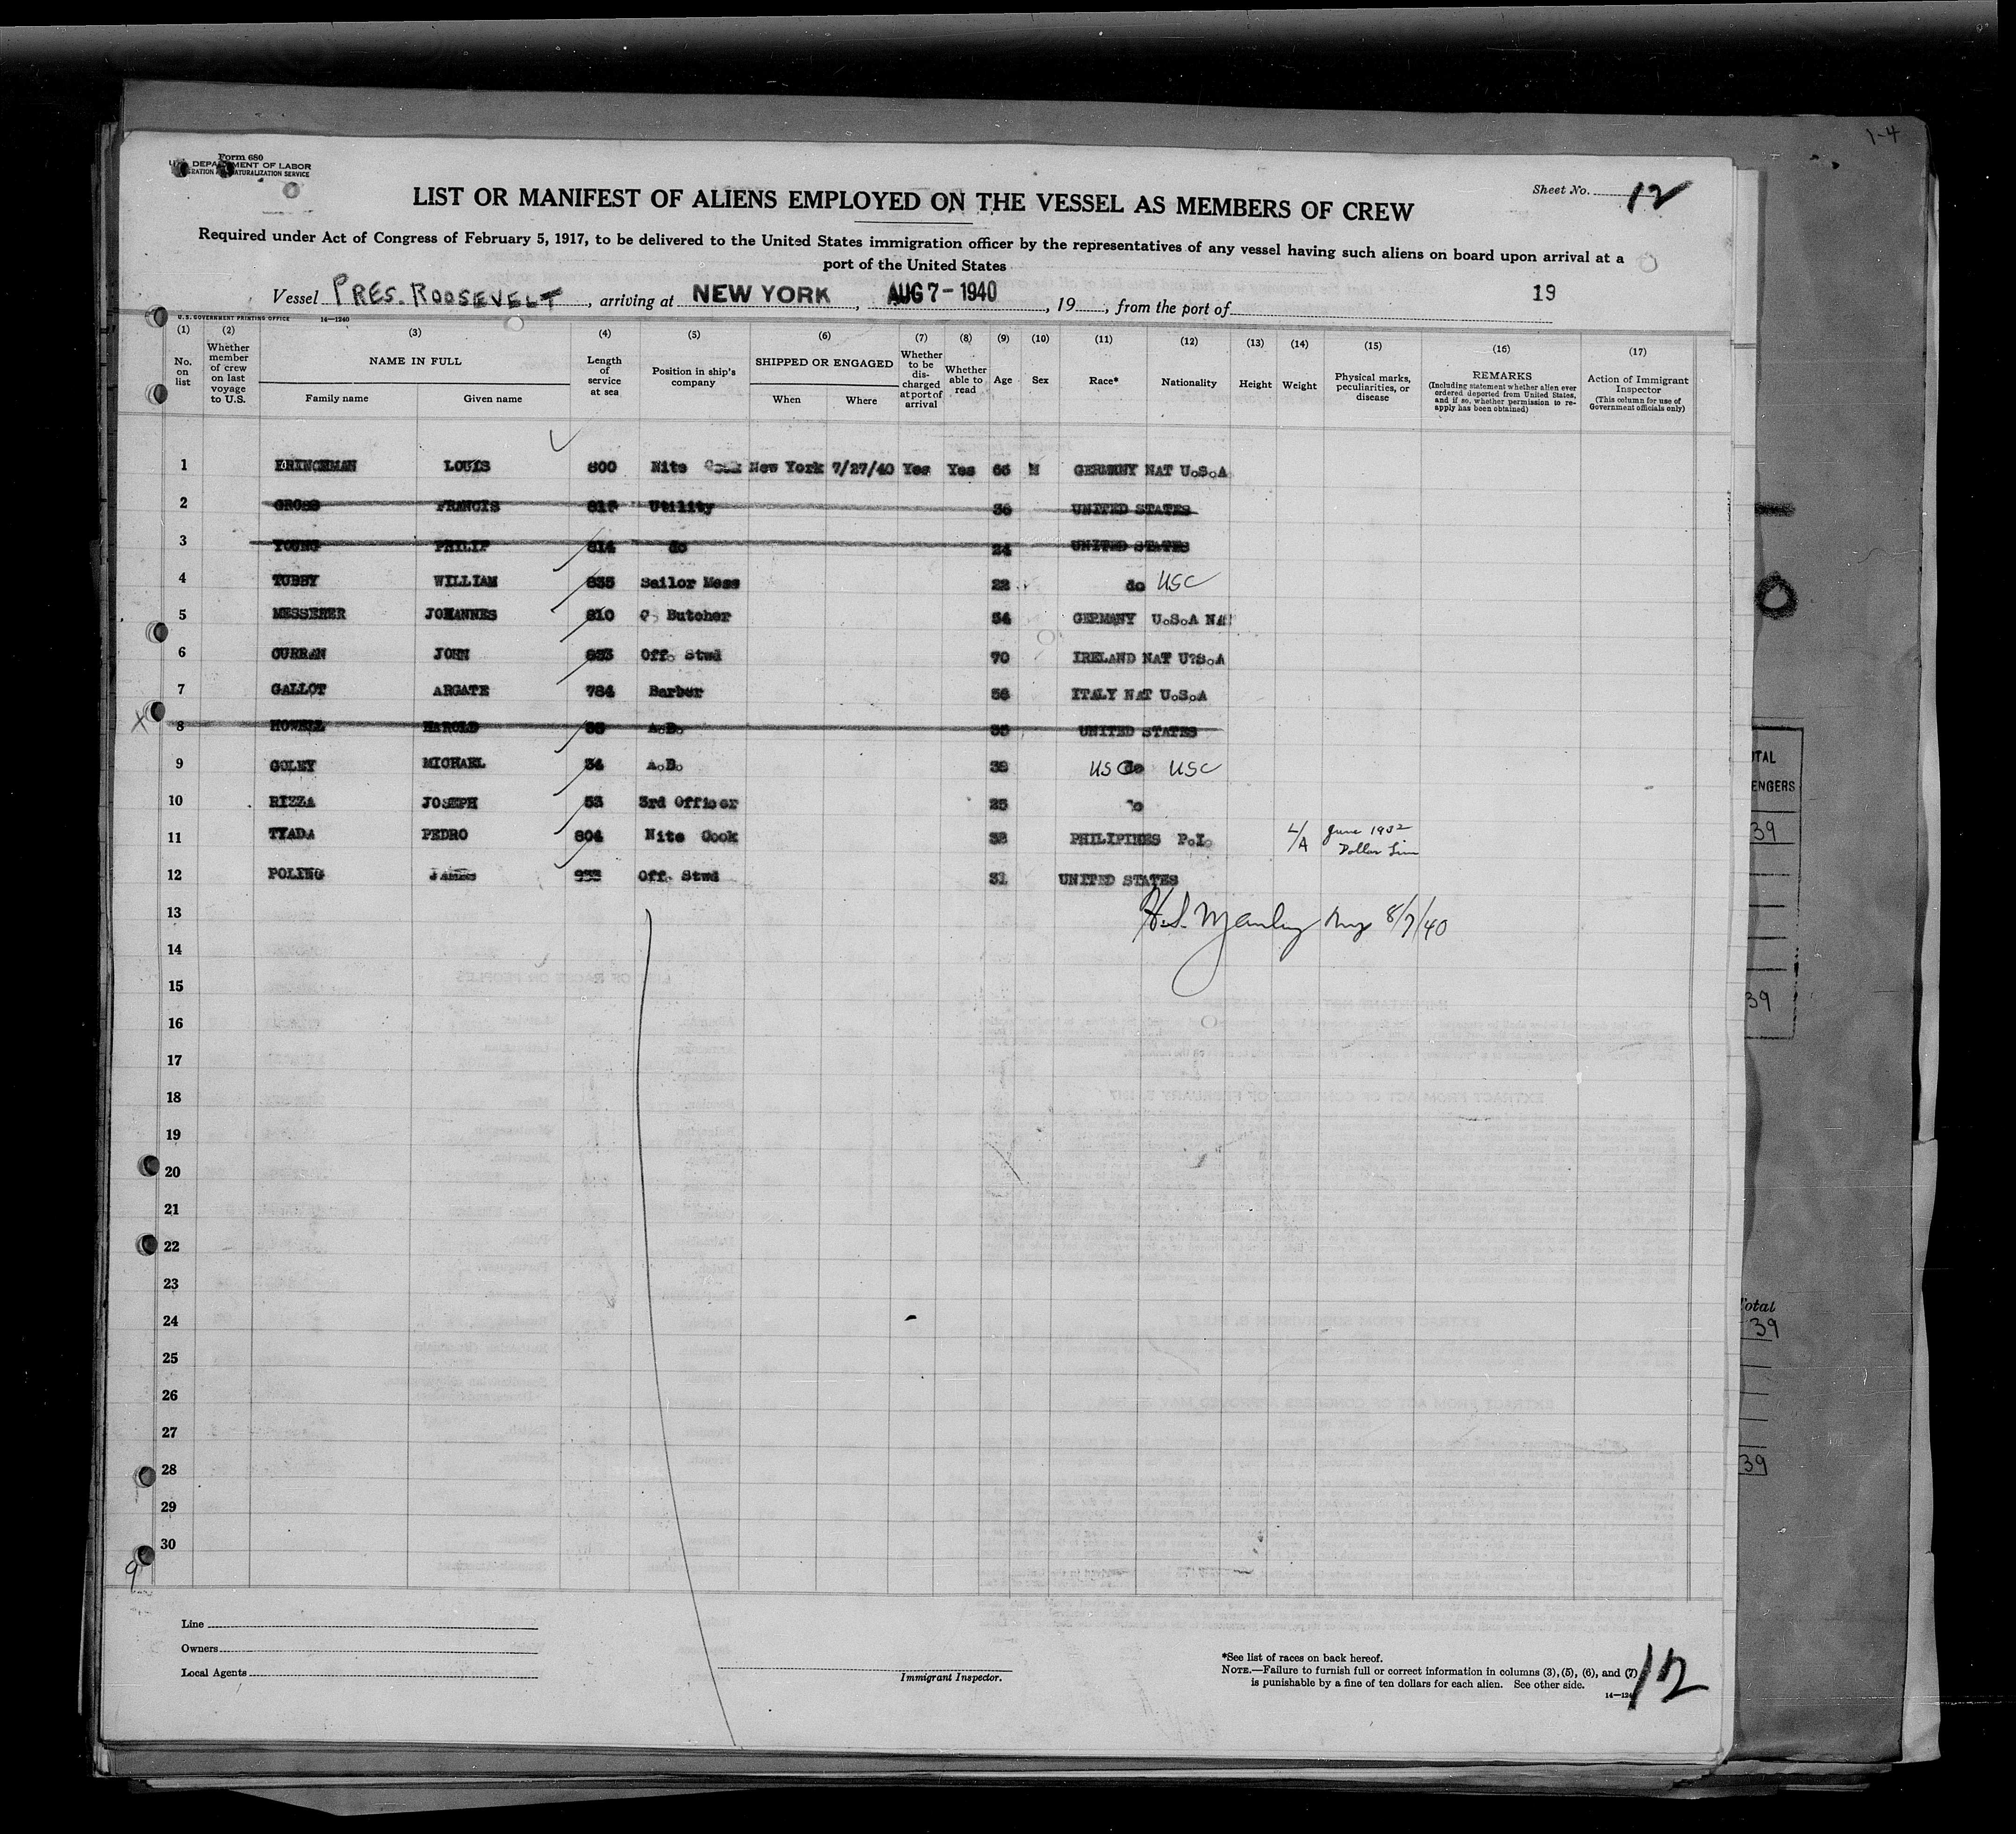 Form 680
DEPARTMENT OF LABOR
NATURALIZATION SERVICE
1-4
Sheet No. 12
LIST OR MANIFEST OF ALIENS EMPLOYED ON THE VESSEL AS MEMBERS OF CREW
Required under Act of Congress of February 5, 1917, to be delivered to the United States immigration officer by the representatives of any vessel having such aliens on board upon arrival at a
port of the United States
Vessel PRES. ROOSEVELT, arriving at NEW YORK, AUG 7-1940, 19, from the port of 19
U.S. GOVERNMENT PRINTING OFFICE 14-1240
(1) (2) (3) (4) (5) (6) (7) (8) (9) (10) (11) (12) (13) (14) (15) (16) (17)
No. on list
Whether member of crew on last voyage to U.S.
NAME IN FULL
Family name Given name
Length of service at sea
Position in ship's company
SHIPPED OR ENGAGED
When Where
Whether to be discharged at port of arrival
Whether able to read
Age
Sex
Race*
Nationality
Height
Weight
Physical marks, peculiarities, or disease
REMARKS
(Including statement whether alien ever ordered deported from United States, and if so, whether permission to re-apply has been obtained)
Action of Immigrant Inspector
(This column for use of Government officials only)
1 LOUIS 800 Nite Cook New York 7/27/40 Yes Yes 66 M GERMANY NAT U.S.A
2 GROSS FRANCIS Utility 36 UNITED STATES
3 YOUNG PHILIP 814 do 24 UNITED STATES
4 TUBBY WILLIAM 835 Sailor Mess 22 do USC
5 MESSERER JOHANNES 810 Butcher 54 GERMANY U.S.A NAT
6 CURRAN JOHN 833 Off. Stwd 70 IRELAND NAT U?S.A
7 GALLOT ARGATE 784 Barber 56 ITALY NAT U.S.A
X 8 HOWELL HAROLD A.B. 35 UNITED STATES
9 GOLEY MICHAEL 34 A.B. 38 USC do USC
10 RIZZA JOSEPH 53 3rd Officer 25 do
11 TYADA PEDRO 804 Nite Cook 38 PHILIPINES P.I. L/A June 1932
Dollar Line
12 POLING JAMES 933 Off. Stwd 31 UNITED STATES
13
H.S. Manley Insp 8/7/40
14
15
16
17
18
19
20
21
22
23
24
25
26
27
28
29
30
9
Line
Owners
Local Agents
Immigrant Inspector.
*See list of races on back hereof.
NOTE.—Failure to furnish full or correct information in columns (3), (5), (6), and (7)
is punishable by a fine of ten dollars for each alien. See other side.
12
39
39
Total
39
39